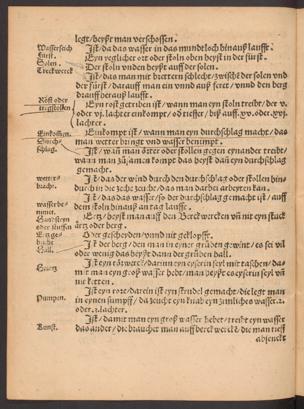 legt/heyßt man verschossen.
Wasserseich Ist/da das wasser in das mundtloch hinauß laufft.
fürst. Eyn yeglicher ort oder stoln oben heyst in der fürst.
Solen. Der stoln unden heyßt auff der solen.
Treckwerck Ist/das man mit brettern schlecht/zwischẽ der solen und
der fürst/darauff man ein unnd auß feret/unnd den berg
darauff herauß laufft.
Röst oder Eyn rost getriben ist/wann man eyn stoln treibt/der v.
oder vj. lachter einkompt/od tieffer/biß auff .xv. oder .xvj.
lachter.
Einkompt ist/wann man eyn durchschlag macht/das
Durch- man wetter bringt und wasser benimpt.
schlag. Ist/wañ man örter oder stollen gegen eynander treibt/
wann man zusamen kompt das heyst dañ eyn durchschlag
gemacht.
Ist/das der wind durch den durchschlag oder stollen hin-
bracht. durch in die zeche zeucht/das man darbei arbeyten kan.
wasser be- Ist/das das wasser so der durchschlag gemacht ist/auff
nummet. dem stoln hinauß an tag laufft.
Ertz/heyst man auff den Bercktwercken uñ nit eyn stuck
ärtz oder berg.
Der gescheyden/unnd nit geklopfft.
Ist der berg/den man in eyner grůben gewint/es sei vil
oder wenig das heyßt dann der grůben hall.
Ist eyn rörwerck/darinn eyn eysern seyl mit taschen/da-
mit man eyn groß wasser hebt/man heyßt es eysern seyl uñ
nit ketten.
Pumpen. Ist eyn rore/darein ist eyn stendel gemacht/die legt man
in eynen sumpff/da zeucht eyn knab eyn zimliches wasser .2.
oder .3. lachter.
Kunst. Ist/damit man eyn groß wasser hebet/treibt eyn wasser
das ander/die brauchet man auff bercktwerckẽ/die man tieff
absenckt